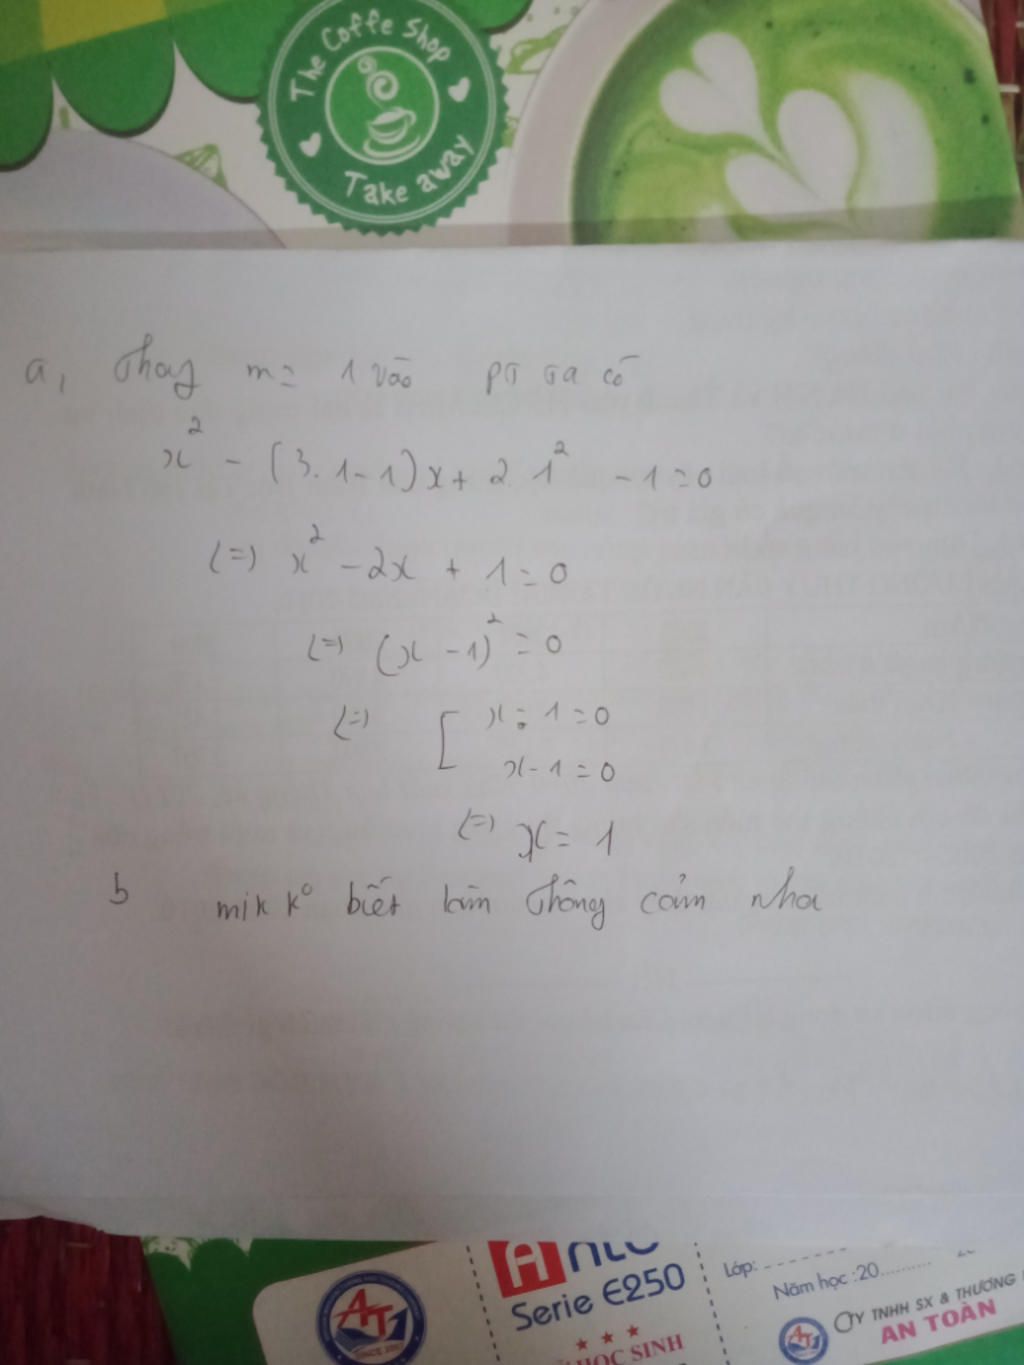 The Coffe Shop
Take away
a, Thay m = 1 vào PT ta có
x² - (3.1-1)x + 2.1² - 1 = 0
(=) x² - 2x + 1 = 0
(=) (x - 1)² = 0
(=) [ x - 1 = 0
x - 1 = 0
(=) x = 1
b mik k° biết làm thông cảm nha
Serie E250
HỌC SINH
Lớp:
Năm học :20
CTY TNHH SX & THƯƠNG
AN TOÀN
AT
SINCE
AT